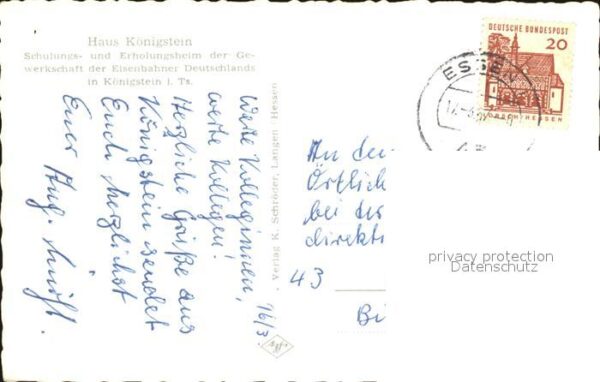 Haus Königstein
Schulungs- und Erholungsheim der Ge-
werkschaft der Eisenbahner Deutschlands
in Königstein i. Ts.
Werte Kolleginnen,
werte Kollegen!
Herzliche Grüße aus
Königstein sendet
Euch herzlichst
Euer Aug.
16/3.
Verlag K. Schröder, Langen - Hessen
Agfa
DEUTSCHE BUNDESPOST
20
LORSCH/HESSEN
ESSEN
An den
Örtlich
bei der
direkt
43
privacy protection
Datenschutz